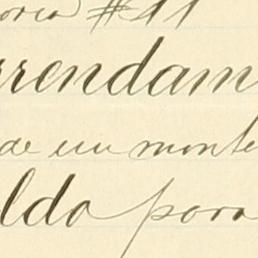 #11
rrendam
de un monte
ldo para